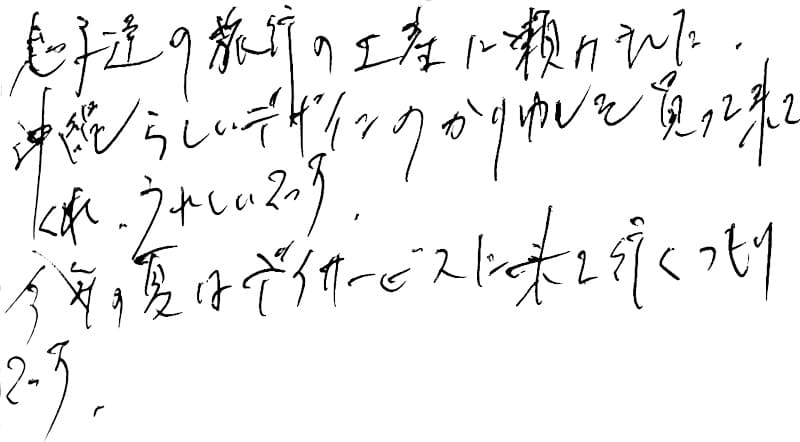 息子達の旅行の土産に頼みました.
沖縄らしいデザインのかりゆしを買って来て
くれ、うれしいです.
今年の夏はデイサービスに来て行くつもり
です.